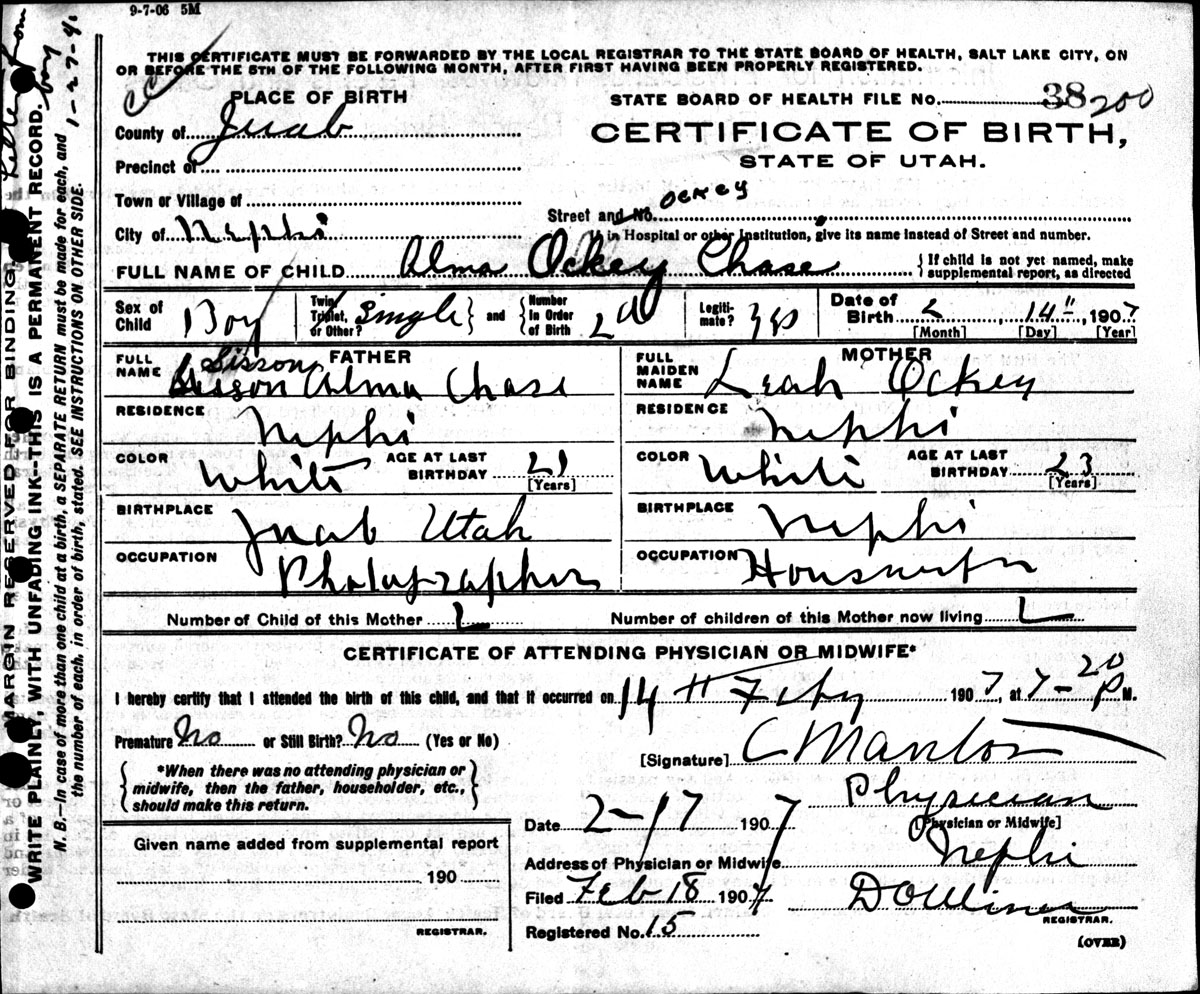 9-7-06 5M
THIS CERTIFICATE MUST BE FORWARDED BY THE LOCAL REGISTRAR TO THE STATE BOARD OF HEALTH, SALT LAKE CITY, ON
OR BEFORE THE 5TH OF THE FOLLOWING MONTH, AFTER FIRST HAVING BEEN PROPERLY REGISTERED.
PLACE OF BIRTH
STATE BOARD OF HEALTH FILE NO. 38 200
County of Juab
CERTIFICATE OF BIRTH,
Precinct of
STATE OF UTAH.
Town or Village of
Ockey
Street and No.
City of Nephi
If in Hospital or other Institution, give its name instead of Street and number.
FULL NAME OF CHILD Alma Ockey Chase {If child is not yet named, make supplemental report, as directed
Sex of Child Boy
Twin, Triplet, or Other? Single } and { Number in Order of Birth 2d
Legiti-mate? yes
Date of Birth 2, 14", 1907
[Month] [Day] [Year]
FATHER
FULL NAME Sisson Alma Chase
Sisson
RESIDENCE Nephi
COLOR White AGE AT LAST BIRTHDAY 21
[Years]
BIRTHPLACE Juab Utah
OCCUPATION Photographer
MOTHER
FULL MAIDEN NAME Leah Ockey
RESIDENCE Nephi
COLOR White AGE AT LAST BIRTHDAY 23
[Years]
BIRTHPLACE Nephi
OCCUPATION Housewife
Number of Child of this Mother 2 Number of children of this Mother now living 2
CERTIFICATE OF ATTENDING PHYSICIAN OR MIDWIFE*
I hereby certify that I attended the birth of this child, and that it occurred on 14th Feby 1907, at 7-20 P M.
Premature No or Still Birth? No (Yes or No)
[Signature]
*When there was no attending physician or
midwife, then the father, householder, etc.,
should make this return.
Physician
[Physician or Midwife]
Date 2-17 1907
Address of Physician or Midwife Nephi
Filed Feb 18 1907
REGISTRAR.
Registered No. 15
(OVER)
Given name added from supplemental report
190
REGISTRAR.
MARGIN RESERVED FOR BINDING
WRITE PLAINLY, WITH UNFADING INK--THIS IS A PERMANENT RECORD.
N. B.--In case of more than one child at a birth, a SEPARATE RETURN must be made for each, and
the number of each, in order of birth, stated. SEE INSTRUCTIONS ON OTHER SIDE.